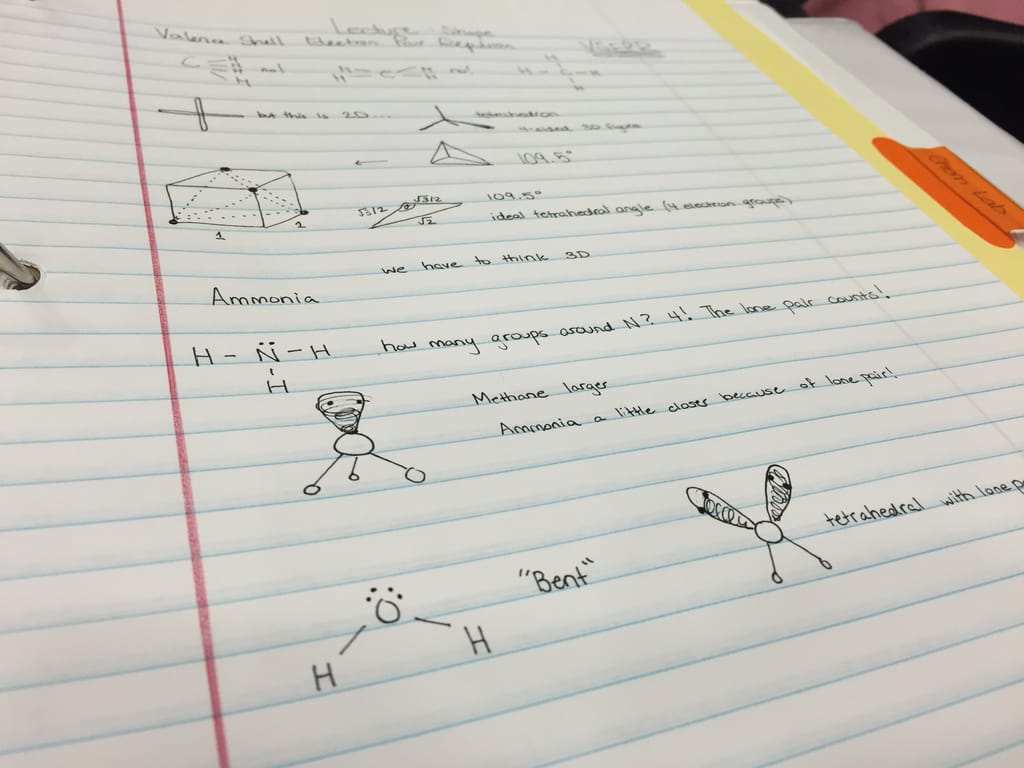 Lecture Shape
Valence Shell Electron Pair Repulsion VSEPR
C H H H H not H H C H H not H - C - H H H
but this is 2D... tetrahedron
4-sided 3D figure
← 109.5°
√3/2 √3/2 109.5°
√2 ideal tetrahedral angle (4 electron groups)
1
we have to think 3D
Ammonia
H - N̈ - H how many groups around N? 4! The lone pair counts!
H
Methane larger
Ammonia a little closer because of lone pair!
tetrahedral with lone
"Bent"
O
H H
Chem Lab